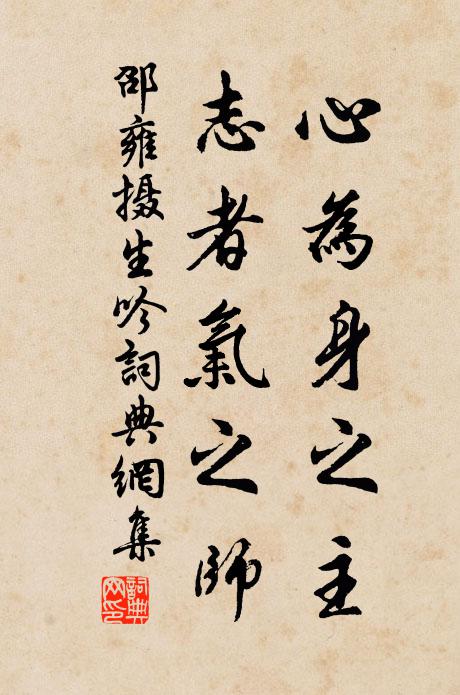 心為身之主
志者氣之師
邵雍摄生吟詞典網集
詞典
网印